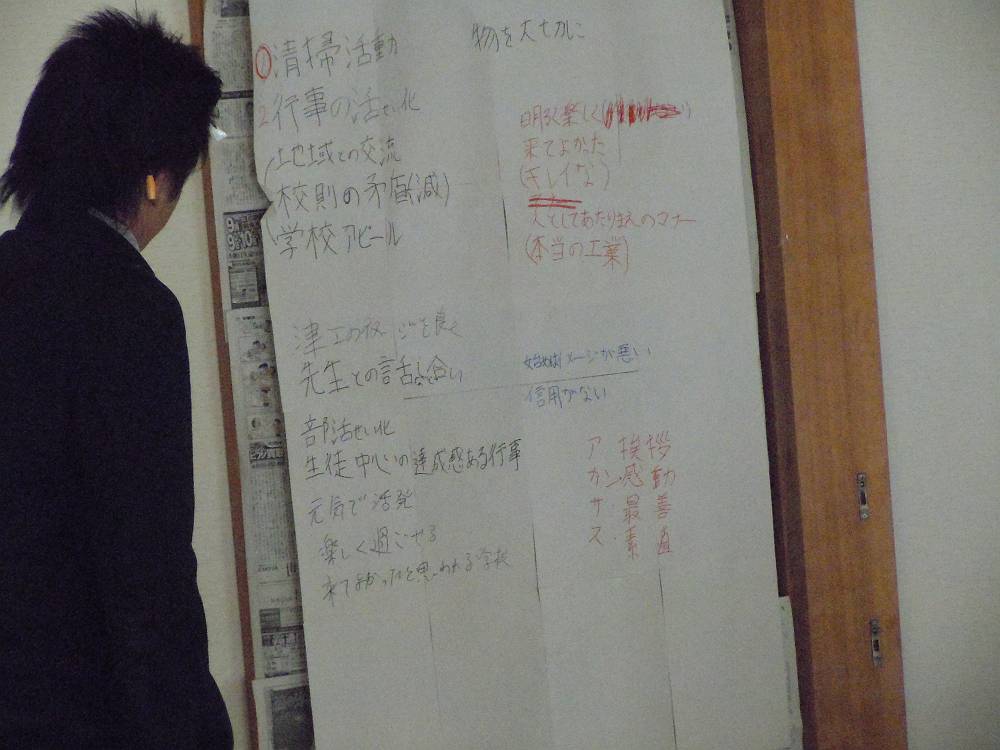 ①清掃活動
2行事の活せい化
地域との交流
校則の矛盾(減)
学校アピール
津工のイメージを良く
先生との話し合い
部活せい化
生徒中心の達成感ある行事
元気で活発
楽しく過ごせる
来てよかったと思われる学校
物を大切に
明るく楽しく
来てよかた
(キレイな)
人としてあたりまえのマナー
(本当の工業)
始めはイメージが悪い
信用がない
ア 挨拶
カン・感動
サ・最善
ス・素直